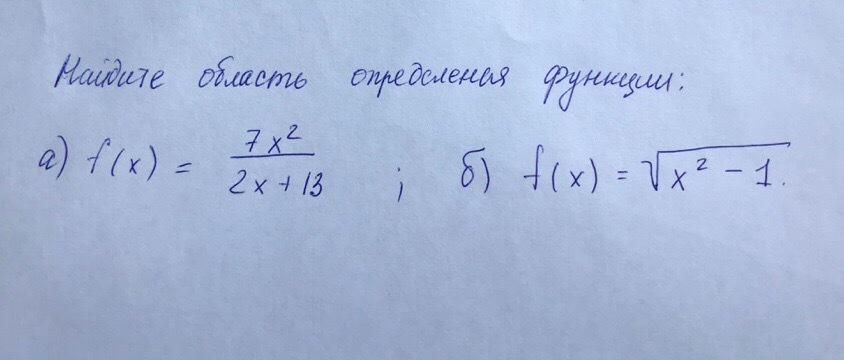 Найдите область определения функции:
а) f(x) = 7x²/(2x+13) ; б) f(x) = √(x² - 1).